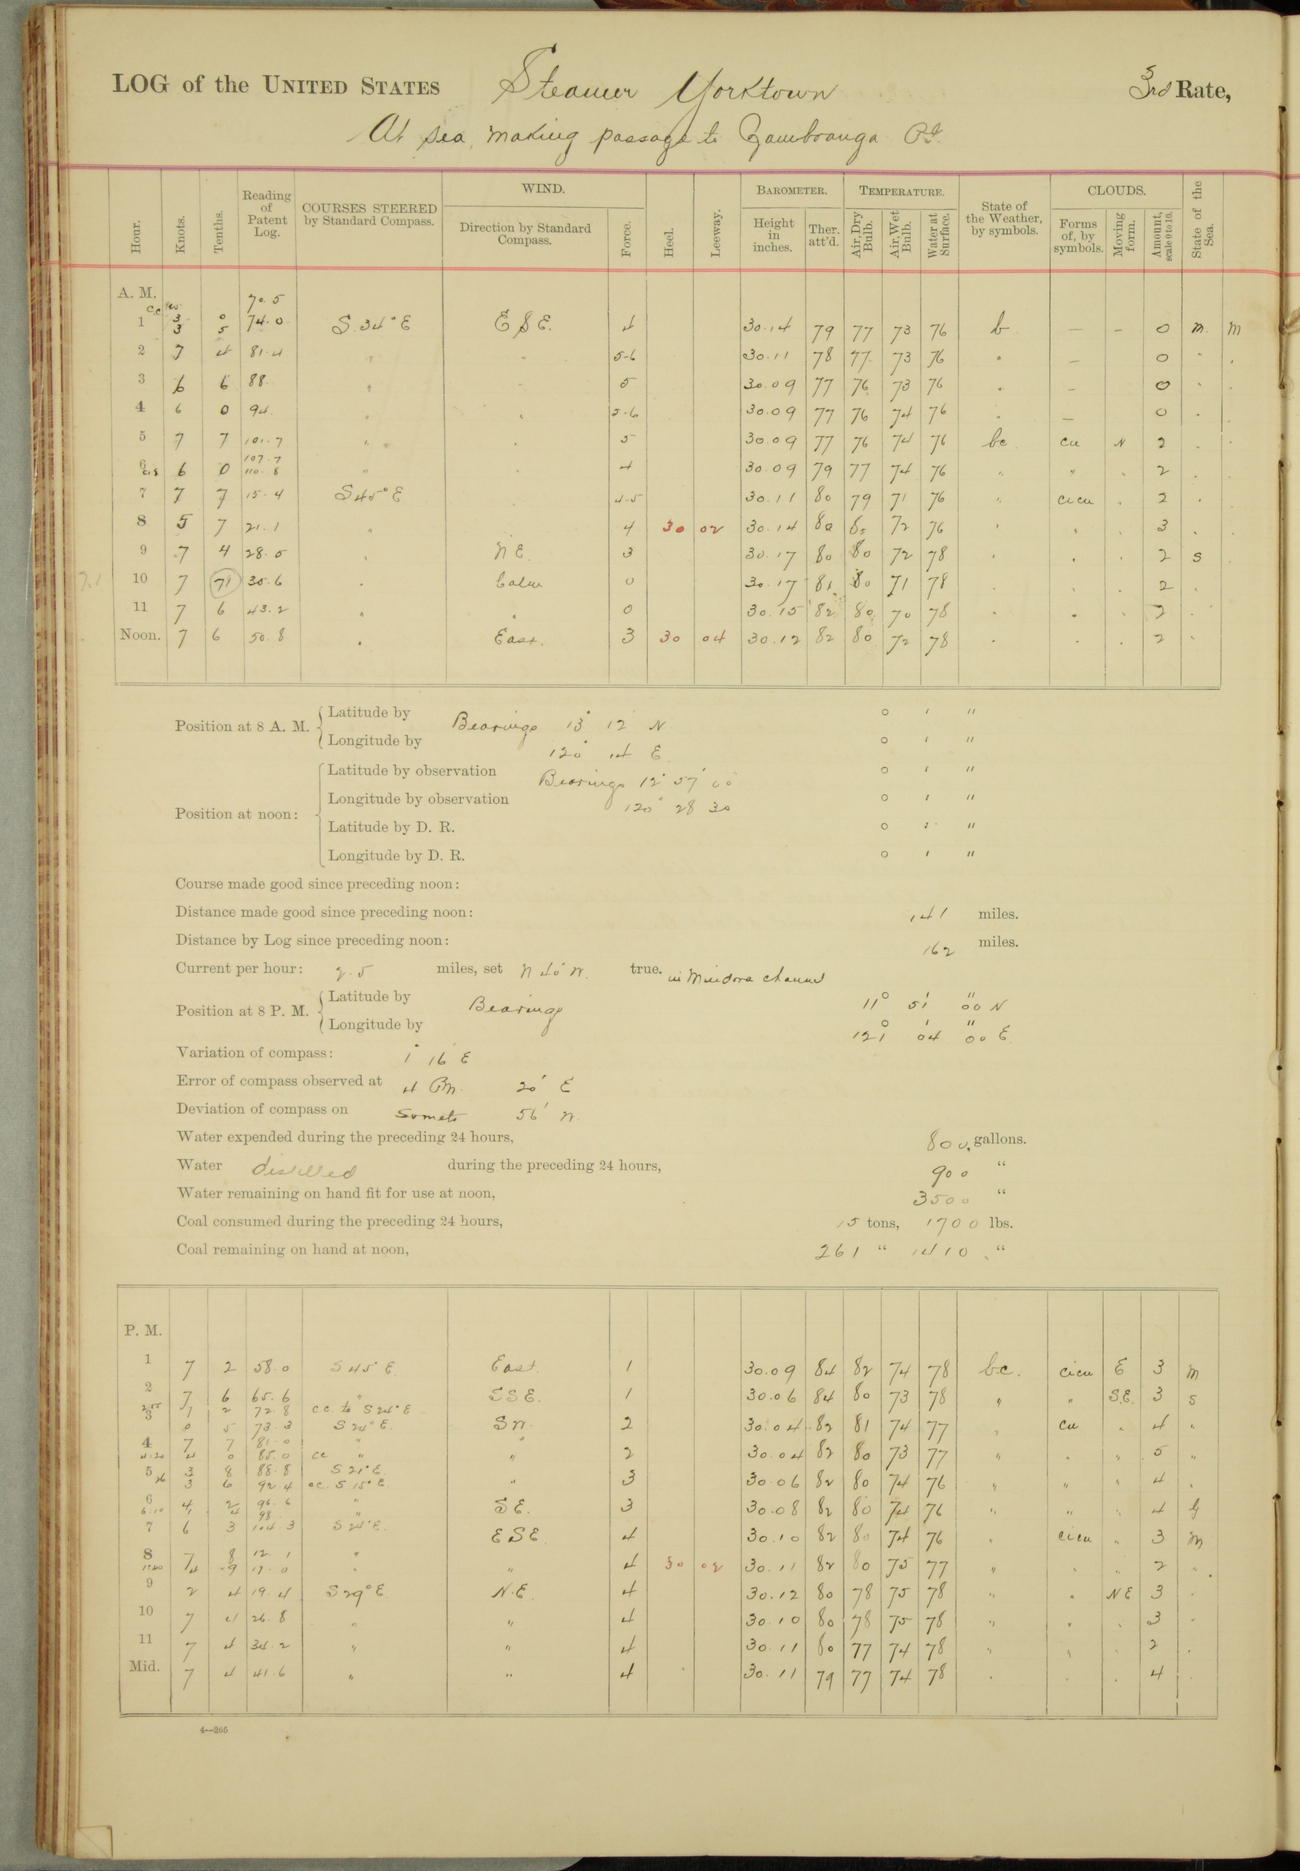 LOG of the UNITED STATES Steamer Yorktown 3rd Rate,
At sea, making passage to Zamboanga P.I.
Hour. Knots. Tenths. Reading of Patent Log. COURSES STEERED by Standard Compass. WIND. Direction by Standard Compass. Force. Heel. Leeway. BAROMETER. Height in inches. Ther. att'd. TEMPERATURE. Air, Dry Bulb. Air, Wet Bulb. Water at Surface. State of the Weather, by symbols. CLOUDS. Forms of, by symbols. Moving form. Amount, scale 0 to 10. State of the Sea.
A. M. 70.5
3 0
1 3 5 74.0 S.34°E ESE. 4 30.14 79 77 73 76 b — – 0 m m
2 7 4 81.4 " " 5-6 30.11 78 77 73 76 " — 0 " "
3 6 6 88 " " 5 30.09 77 76 73 76 " – 0 " "
4 6 0 94 " " 5-6 30.09 77 76 74 76 " — 0 " "
5 7 7 101.7 " " 5 30.09 77 76 74 76 bc cu N 2 " "
107.7
6 6 0 110.8 " " 4 30.09 79 77 74 76 " " " 2 " "
7 7 7 15.4 S45°E " 4-5 30.11 80 79 71 76 " cicu " 2 " "
8 5 7 21.1 " " 4 30 02 30.14 80 80 72 76 " " " 3 " "
9 7 4 28.5 " NE. 3 30.17 80 80 72 78 " " " 2 S
7.1 10 7 71 35.6 " Calm 0 30.17 81 80 71 78 " " " 2 "
11 7 6 43.2 " " 0 30.15 82 80 70 78 " " " 2 "
Noon. 7 6 50.8 " East. 3 30 04 30.12 82 80 72 78 " " " 2 "
Position at 8 A. M. Latitude by Bearings 13° 12 N ° ′ ″
Longitude by 120° 14 E ° ′ ″
Position at noon: Latitude by observation Bearings 12° 57′ 00 ° ′ ″
Longitude by observation 120° 28 30 ° ′ ″
Latitude by D. R. ° ′ ″
Longitude by D. R. ° ′ ″
Course made good since preceding noon:
Distance made good since preceding noon: 141 miles.
Distance by Log since preceding noon: 162 miles.
Current per hour: 2.5 miles, set N 45 W. true. in Mindora channel
Position at 8 P. M. Latitude by Bearings 11° 51′ 00″ N
Longitude by 121° 04′ 00″ E
Variation of compass: 1° 16 E
Error of compass observed at 4 PM. 20′ E
Deviation of compass on 56′ W.
Water expended during the preceding 24 hours, 800. gallons.
Water distilled during the preceding 24 hours, 900 “
Water remaining on hand fit for use at noon, 3500 “
Coal consumed during the preceding 24 hours, 15 tons, 1700 lbs.
Coal remaining on hand at noon, 261 “ 1410 “
P. M.
1 7 2 58.0 S 45° E East. 1 30.09 84 82 74 78 bc. cicu E 3 m
2 7 6 65.6 " ESE. 1 30.06 84 80 73 78 " " S.E. 3 s
7 2 72.8 cc. to S 24° E
3 0 5 73.3 S 24° E. SW. 2 30.04 82 81 74 77 " cu " 4 "
4 7 7 81.0 " "
4.20 4 0 85.0 cc " " 2 30.04 82 80 73 77 " " " 5 "
5 3 8 88.8 S 21° E.
3 6 92.4 cc. S 15° E. " 3 30.06 82 80 74 76 " " " 4 "
6 4 2 96.6 " SE. 3 30.08 82 80 74 76 " " " 4 g
98
7 6 3 104.3 S 24° E. ESE. 4 30.10 82 80 74 76 " cicu " 3 m
8 7 8 12.1 "
4 9 17.0 " 4 30 02 30.11 82 80 75 77 " " " 2 "
9 2 4 19.4 S 29° E N.E. 4 30.12 80 78 75 78 " " NE 3 "
10 7 4 26.8 " " 4 30.10 80 78 75 78 " " " 3 "
11 7 4 34.2 " " 4 30.11 80 77 74 78 " " " 2 "
Mid. 7 4 41.6 " " 4 30.11 79 77 74 78 " " " 4 "
4—265